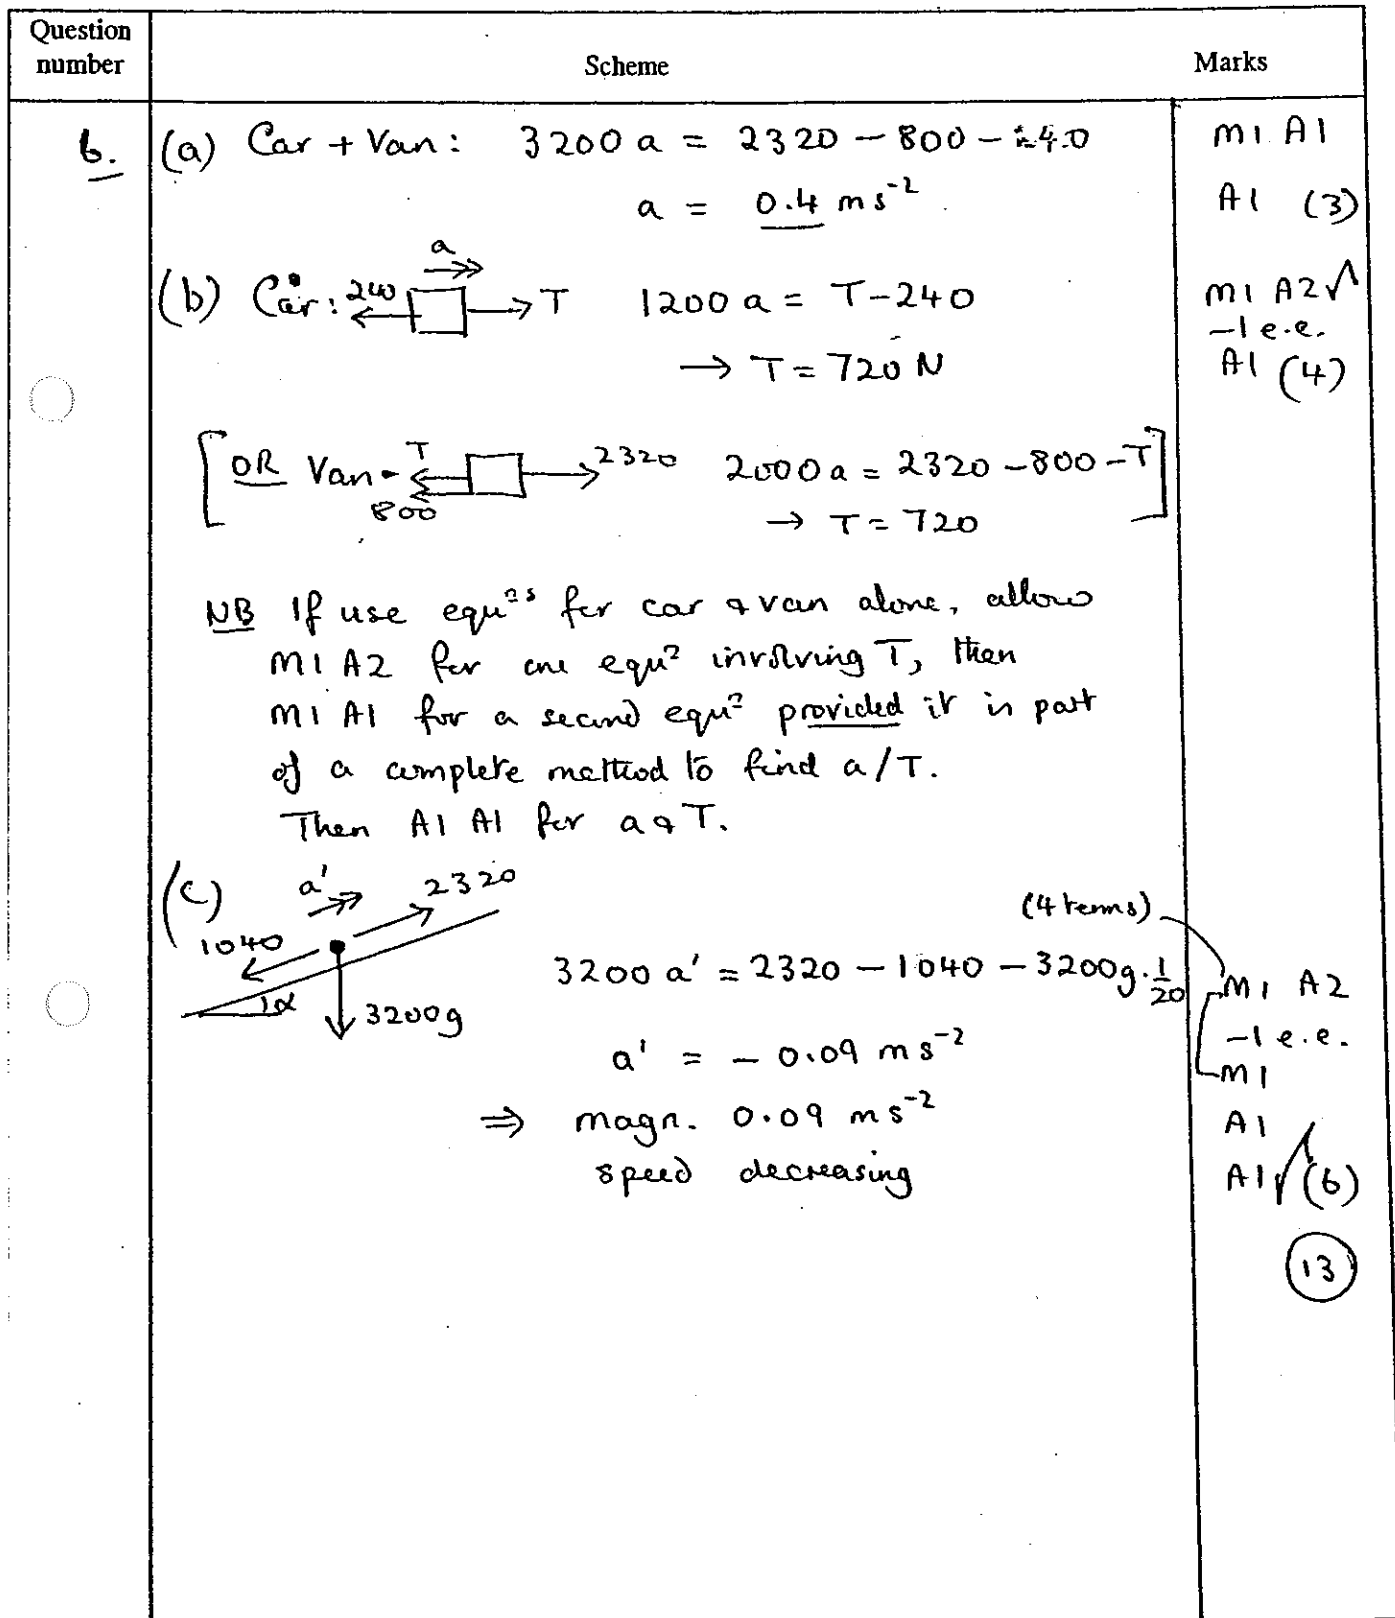 Question number
Scheme
Marks
6.
(a) Car + Van: 3200 a = 2320 - 800 - 240
M1 A1
a = 0.4 ms⁻²
A1 (3)
a
(b) Car: 240 T 1200 a = T - 240
M1 A2√
-1 e.e.
→ T = 720 N
A1 (4)
[OR Van - T 800 2320 2000 a = 2320 - 800 - T]
→ T = 720
NB If use equⁿs for car & van alone, allow
M1 A2 for one equⁿ involving T, then
M1 A1 for a second equⁿ provided it is part
of a complete method to find a/T.
Then A1 A1 for a & T.
(c) a' 2320
1040
α 3200g
(4 terms)
3200 a' = 2320 - 1040 - 3200g . 1/20
M1 A2
-1 e.e.
a' = - 0.09 ms⁻²
M1
⇒ magn. 0.09 ms⁻²
A1
speed decreasing
A1√ (6)
13